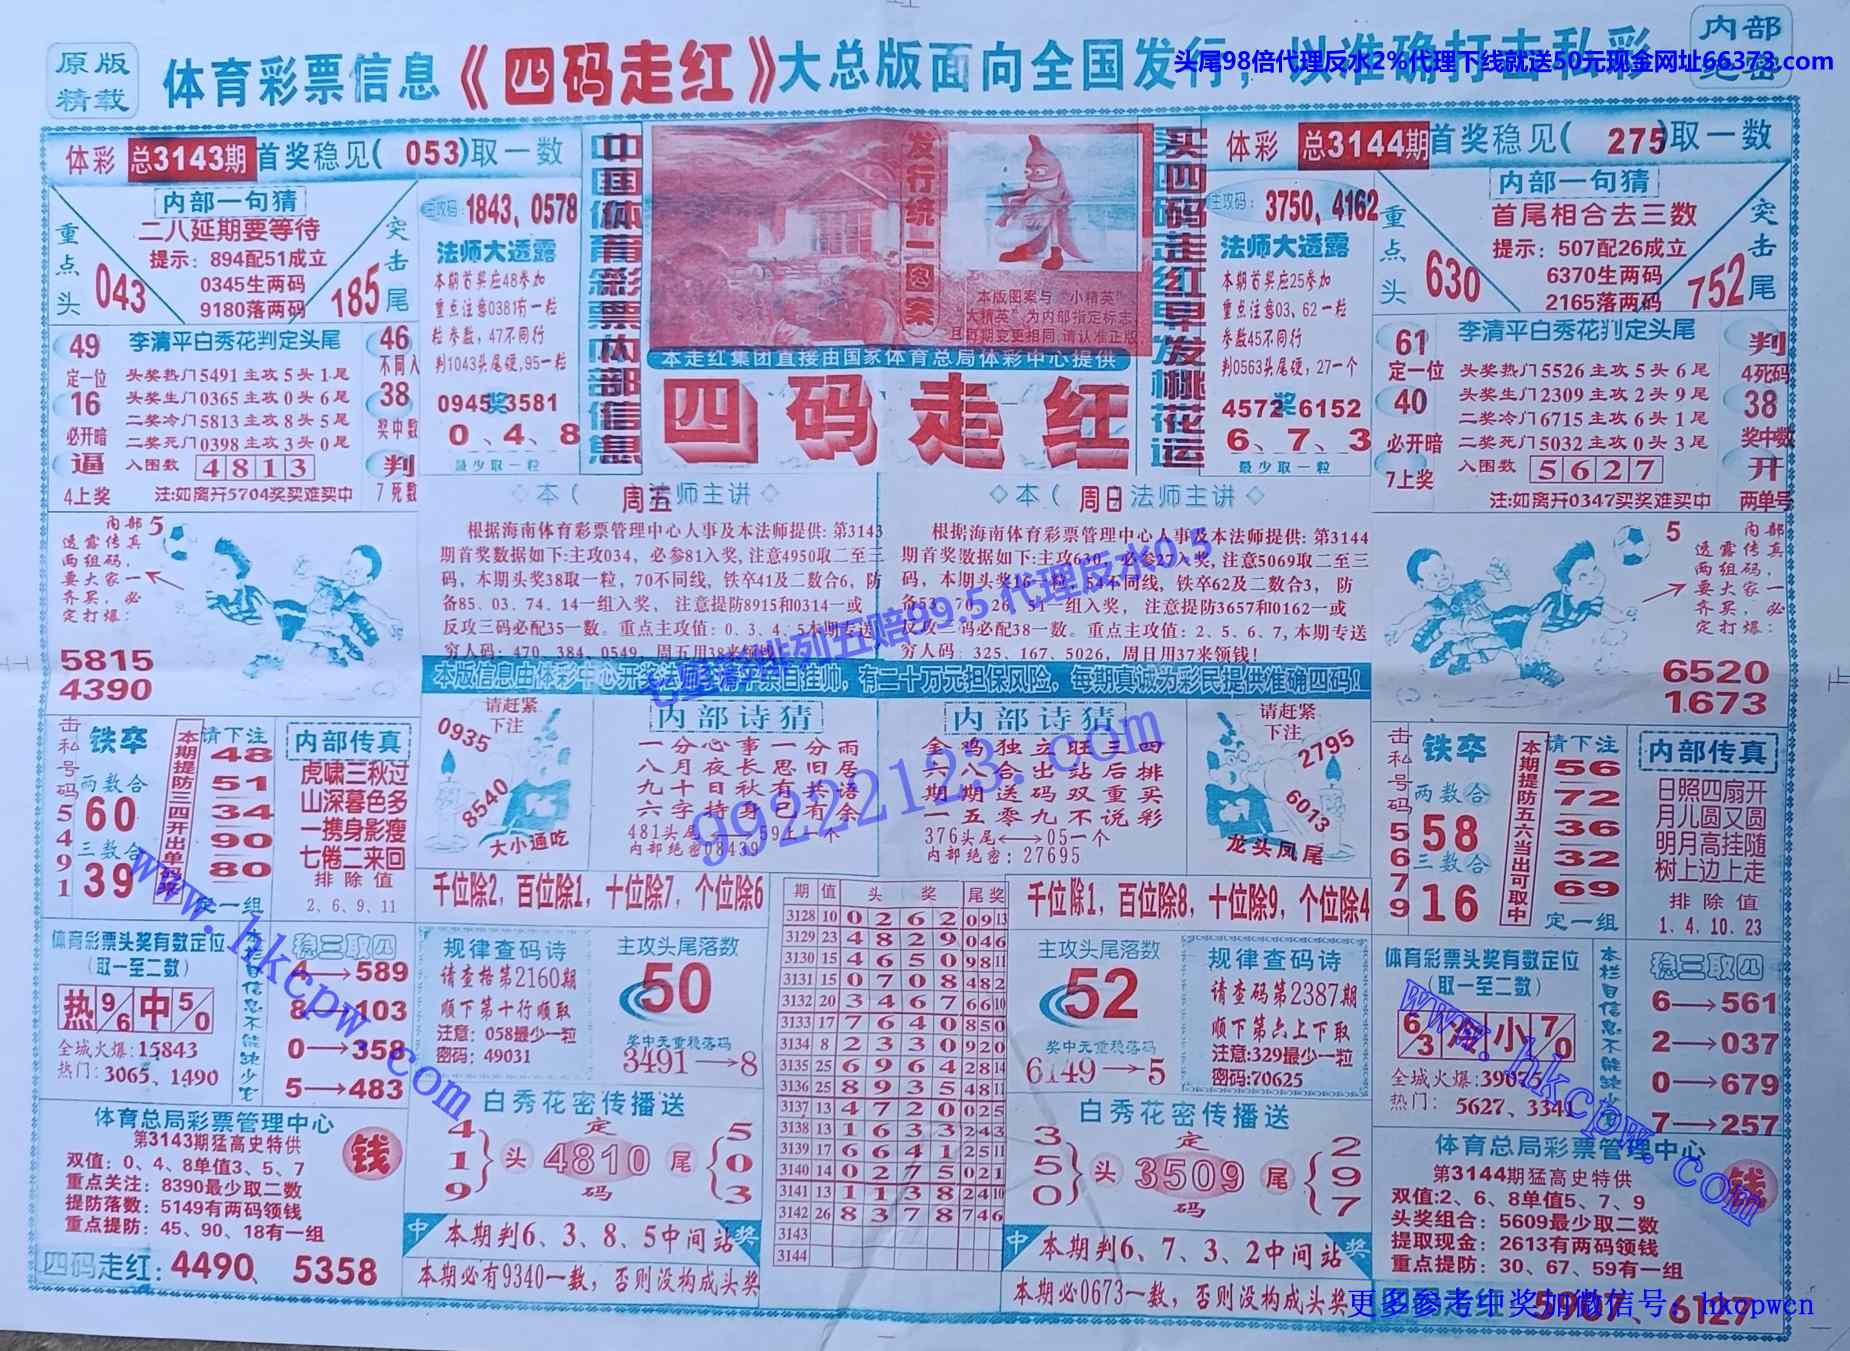 原版
精载
体育彩票信息《四码走红》大总版面向全国发行，以准确打击私彩
内部
头尾98倍代理反水2%代理下线就送50元现金网址66373.com
体彩 总3143期 首奖稳见(053)取一数
内部一句猜
二八延期要等待
提示：894配51成立
0345生两码
9180落两码
重点头
043
突击尾
185
主攻码:1843、0578
法师大透露
本期首奖应48参加
重点注意0381有一粒
粒参数，47不同行
判1043头尾硬,95一粒
0945奖3581
0、4、8
最少取一粒
中国体育彩票内部信息
发行统一图案
本版图案与“小精英”
“大精英”为内部指定标志
且每期变更相同,请认准正版
本走红集团直接由国家体育总局体彩中心提供
四码走红
买四码走红早发桃花运
体彩 总3144期 首奖稳见(275)取一数
主攻码:3750、4162
法师大透露
本期首奖应25参加
重点注意03、62一粒
参数45不同行
判0563头尾硬,27一个
4572奖6152
6、7、3
最少取一粒
内部一句猜
首尾相合去三数
提示：507配26成立
6370生两码
2165落两码
重点头
630
突击尾
752
李清平白秀花判定头尾
49
定一位
16
必开暗
逼
4上奖
头奖热门5491主攻5头1尾
头奖生门0365主攻0头6尾
二奖冷门5813主攻8头5尾
二奖死门0398主攻3头0尾
入围数 4813
注:如离开5704奖买难买中
46
不同入
38
奖中数
判
7死数
李清平白秀花判定头尾
61
定一位
40
必开暗
7上奖
头奖热门5526主攻5头6尾
头奖生门2309主攻2头9尾
二奖冷门6715主攻6头1尾
二奖死门5032主攻0头3尾
入围数 5627
注:如离开0347买奖难买中
判
4死码
38
奖中数
开
两单号
本（周五法师主讲
根据海南体育彩票管理中心人事及本法师提供:第3143
期首奖数据如下:主攻034，必参81入奖,注意4950取二至三
码，本期头奖38取一粒，70不同线，铁卒41及二数合6，防
备85、03、74、14一组入奖，注意提防8915和0314一或
反攻三码必配35一数。重点主攻值：0、3、4、5本期专送
穷人码：470、384、0549，周五用38来领钱！
本（周日法师主讲
根据海南体育彩票管理中心人事及本法师提供:第3144
期首奖数据如下:主攻630，必参27入奖,注意5069取二至三
码，本期头奖16一粒，54不同线，铁卒62及二数合3，防
备53、70、26、51一组入奖，注意提防3657和0162一或
反攻三码必配38一数。重点主攻值：2、5、6、7,本期专送
穷人码：325、167、5026，周日用37来领钱!
七星彩排列五赔99.5 代理反水0.5
99222123.com
内部 5
透露传真
两组码，
要大家一
齐买，必
定打爆：
5815
4390
5 内部
透露传真
两组码，
要大家一
齐买，必
定打爆：
6520
1673
有二十万元担保风险，每期真诚为彩民提供准确四码!
请赶紧
下注
0935
8540
大小通吃
内部诗猜
一分心事一分雨
八月夜长思旧居
九十日秋有共语
六字持身已有余
481头尾⟷59上一个
内部绝密08439
内部诗猜
金鸡独立旺三四
六八合出站后排
期期送码双重买
一五零九不说彩
376头尾⟷05一个
内部绝密：27695
请赶紧
下注
2795
6073
龙头凤尾
击私号码5491
铁卒
两数合
60
三数合
39
本期提防三四开出单码来
请下注
48
51
34
90
80
定一组
内部传真
虎啸三秋过
山深暮色多
一携身影瘦
七倦二来回
排除值
2、6、9、11
击私号码5679
铁卒
两数合
58
三数合
16
本期提防五六当出可取中
请下注
56
72
36
32
69
定一组
内部传真
日照四扇开
月儿圆又圆
明月高挂随
树上边上走
排除值
1、4、10、23
千位除2，百位除1，十位除7，个位除6
千位除1，百位除8，十位除9，个位除4
期 值 头奖 尾奖
3128 10 0262 09 13
3129 23 4829 04 6
3130 15 4650 98 11
3131 15 0708 48 2
3132 20 3467 66 10
3133 17 7640 85 0
3134 8 2330 92 0
3135 25 6964 28 14
3136 25 8935 48 11
3137 13 4720 02 5
3138 13 1633 24 3
3139 17 6641 25 11
3140 14 0275 02 1
3141 13 1138 24 10
3142 26 8378 74 6
3143
3144
体育彩票头奖有数定位
(取一至二数)
热 9/6 中 5/0
全城火爆:15843
热门：3065、1490
本栏目信息不能缺少它
稳三取四
4→589
8→103
0→358
5→483
规律查码诗
请查格第2160期
顺下第十行顺取
注意：058最少一粒
密码：49031
主攻头尾落数
50
奖中无重稳落码
3491→8
主攻头尾落数
52
奖中无重稳落码
6149→5
规律查码诗
请查码第2387期
顺下第六上下取
注意:329最少一粒
密码:70625
体育彩票头奖有数定位
(取一至二数)
6/3 小 7/0
全城火爆:
热门： 5627、3341
本栏目信息不能缺少
稳三取四
6→561
2→037
0→679
7→257
www.hkcpw.com
www.hkcpw.com
体育总局彩票管理中心
第3143期猛高史特供
钱
双值：0、4、8单值3、5、7
重点关注：8390最少取二数
提防落数：5149有两码领钱
重点提防：45、90、18有一组
四码走红: 4490、5358
白秀花密传播送
4 1 9 }头 定 4810 码 尾{ 5 0 3
中 本期判6、3、8、5中间站 奖
本期必有9340一数，否则没构成头奖
白秀花密传播送
3 5 0 }头 定 3509 码 尾{ 2 9 7
中 本期判6、7、3、2中间站 奖
本期必0673一数，否则没构成头奖
体育总局彩票管理中心
第3144期猛高史特供
钱
双值:2、6、8单值5、7、9
头奖组合：5609最少取二数
提取现金：2613有两码领钱
重点提防：30、67、59有一组
5907、6127
更多参考中奖加微信号：hkcpwcn